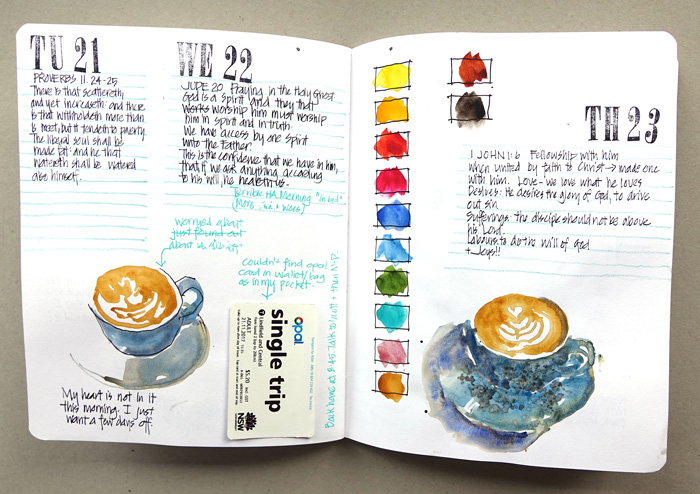 TU 21
PROVERBS 11. 24-25
There is that scattereth
and yet increaseth: and there
is that withholdeth more than
is meet, but it tendeth to poverty
The liberal soul shall be
made fat: and he that
watereth shall be watered
also himself.
worryed about
just found out
about
My heart is not in it
this morning. I just
want a few days off.
WE 22
JUDE 20 Praying in the Holy Ghost.
God is a Spirit and they that
Works worship him must worship
him in spirit and in truth
We have access by one Spirit
unto the Father.
This is the confidence that we have in him,
that, if we ask anything according
to his will, he heareth us.
Terrible HA Morning "in bed"
More
couldn't find opal
card in wallet/bag
as in my pocket.
opal
single trip
Lindfield and Central
ADULT
21.11.2017
$5.20
NSW
GOVERNMENT
Back home at 8:45. Talk to
TH 23
1 JOHN 1:6 Fellowship with him
when united by faith to Christ → made one
with him. Love - we love what he loves
Desires: He desires the glory of God, to drive
out sin.
Sufferings: the disciple should not be above
his Lord.
Labours to do the will of God
+ Joys!!